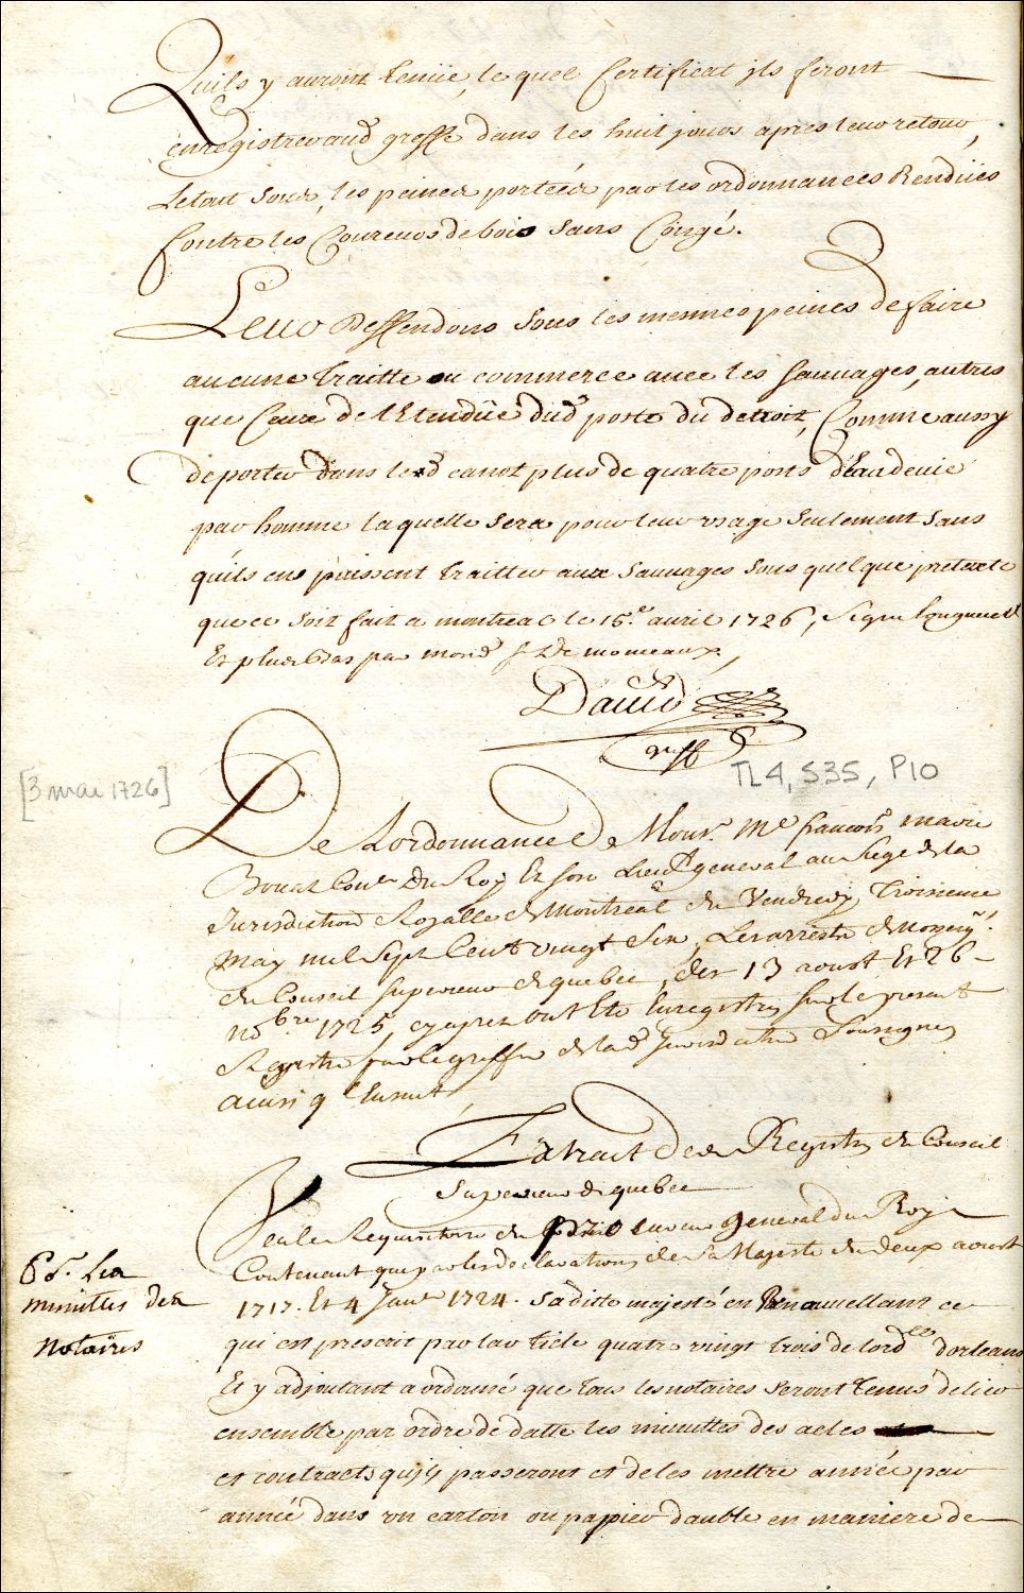 Quils y auront tenüe, le quel Certificat jls feront
enregistrer aud greffe dans les huit jours apres leur retour,
Letout sous les peines portées par les ordonnances Rendües
Contre les Coureurs de bois sans Congé.
Leur Deffendons sous les mesmes peines de faire
aucune traitte ou commerce avec les sauvages, autres
que Ceux de l'Etendüe dud poste du detroit, Comme aussy
de porter dans led canot plus de quatre pots d'Eau de vie
par homme laquelle sera pour leur usage seulement sans
quils en puissent traitter aux sauvages sous quelque pretexte
que ce soit fait a montreal le 15e avril 1726, Signé Longueuil
Et plus bas par mond sr De moneaux,
David
greff
[3 mai 1726]
TL4, S35, P10
De Lordonnance De Monsr. Me francois marie
Bouat Conler Du Roy Et son Lieut general au siege de la
Jurisdiction Royalle de Montreal du Vendredy Troisieme
May mil sept Cent vingt six, Les arrests de Nosseigrs.
du Conseil superieur de quebec, des 13 aoust Et 26
nobre 1725, cy apres ont Eté Enregistrés sur le present
Registre par le greffier de lad Jurisdiction Soussigné
ainsi ql Ensuit,
Extrait des Registres du Conseil
Superieur de quebec
Veu le Requisitoire du procureur general du Roy
Contenant que par les declarations de sa Majesté du deux aoust
1717. Et 4 Janer 1724. sa ditte majesté en Renouvellant ce
qui est prescrit par lar ticle quatre vingt trois de lordce dorleans
Et y adjoutant a ordonné que tous les notaires seront tenus de lier
ensemble par ordre de datte les minuttes des actes
et contracts quils passeront et de les mettre année par
année dans un carton ou papier double en maniere de
Pr. Les
minuttes des
Notaires